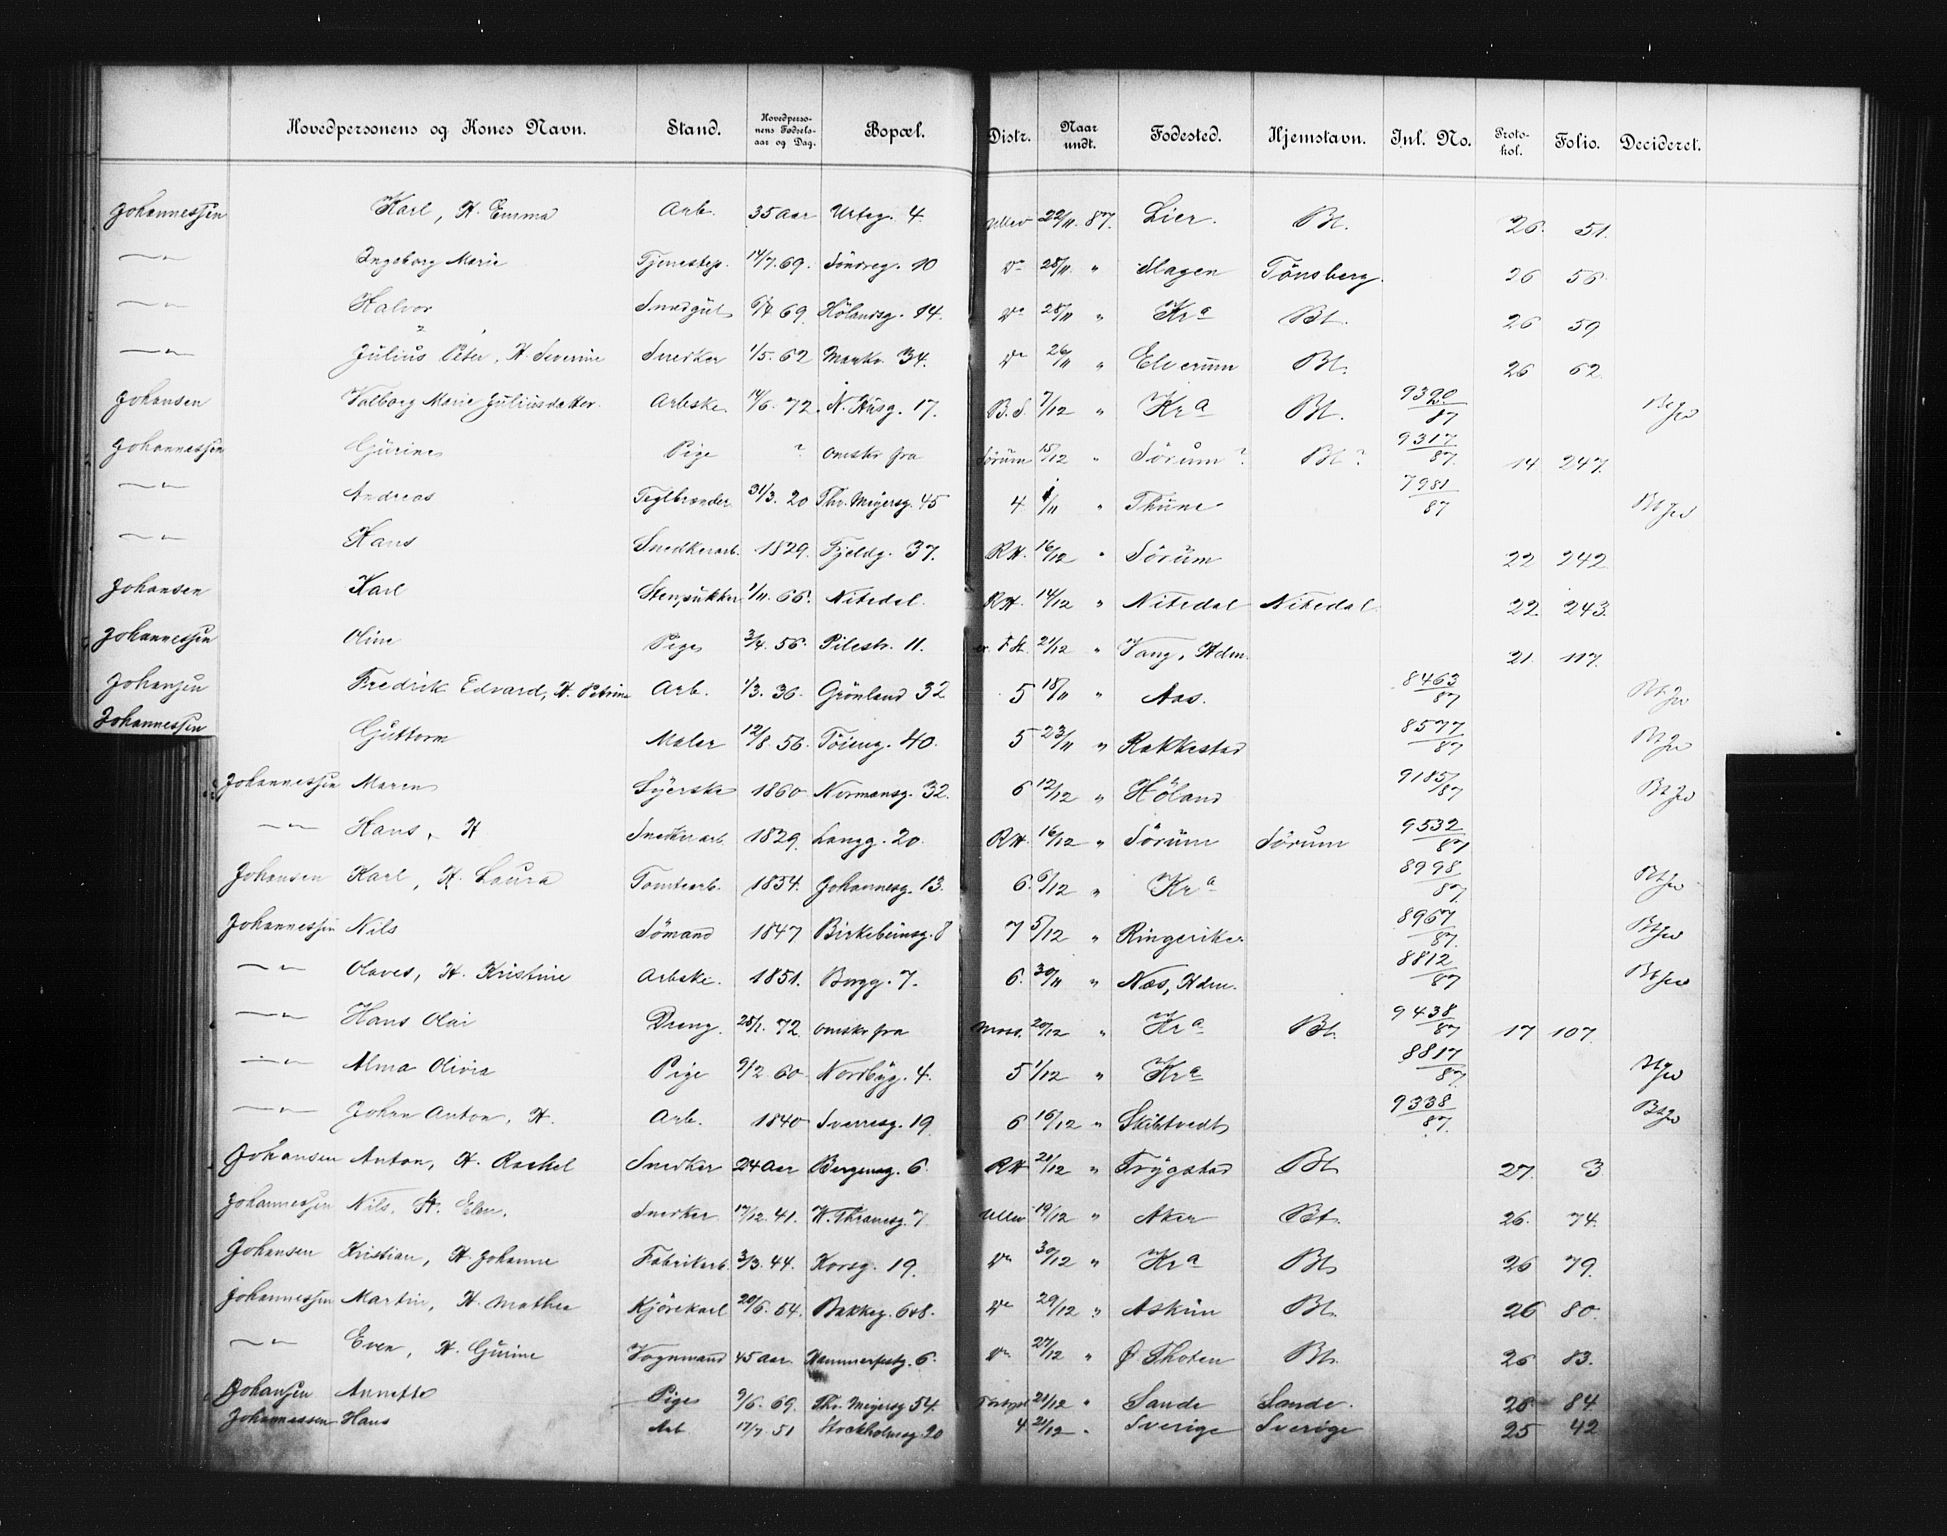 Hovedpersonens og Kones Navn. Stand. Hovedpersonens Fødselsaar og Dag. Bopæl. Distr. Naar undt. Fødested. Hjemstavn. Inl. No. Protokol. Folio. Decideret.
Johannessen Karl, H. Emma Arb. 35 Aar Urteg. 4. Ullev 22/11 87. Lier. Bt. 26. 51.
—"— Ingeborg Marie Tjenestep. 14/7. 69. Søndreg. 10 Do 28/11 " Slagen Tønsberg. 26 56
—"— Halvor Smedgut 6/4 69. Hølandsg. 14. Do 28/11 " Kra Bt. 26 59
—"— Julius Peter, H. Severine Snedker 1/5. 62 Markv. 34. Do 26/11 " Elverum Bt. 26 62
Johansen Valborg Marie Juliusdatter Arbske. 14/6. 72. N. Husg. 17. B.S. 7/12 " Kra Bt. 9390/87
Johannessen Gurine Pige ? Ønskes fra Sørum 15/12 " Sørum? Bt? 9317/87. 14 247.
—"— Andreas Teglbrænder 31/3. 20 Thv. Meyersg. 45 4. 1/11 " Thune 7981/87
—"— Hans Snedkerarb. 1829. Fjeldg. 37. RH. 16/12 " Sørum 22 242
Johansen Karl Stenpukker 1/11. 66. Nitedal. RH. 14/12 " Nitedal Nitedal 22. 243.
Johannessen Oline Pige 3/4. 56. Pilestr. 11. 21/12 " Vang, Hdm. 21. 117.
Johansen Fredrik Edvard, H. Petrine Arb. 1/3. 36. Grønland 32 5 18/11 " Aas. 8463/87
Johannessen Guttorm Maler 12/8. 56. Tøieng. 40. 5 23/11 " Rakkestad 8577/87
Johannessen Maren Syerske 1860 Normansg. 32. 6 12/12 " Høland 9185/87
—"— Hans, H Snedkerarb 1829. Langg. 20. RH. 16/12 " Sørum Sørum 9532/87
Johansen Karl, H. Laura Tomtearb. 1854. Johannesg. 13. 6. 6/12 " Kra 8998/87.
Johannessen Nils Sømand 1847 Birkebeinsg. 8 7 5/12 " Ringerike 8967/87.
—"— Olaves, H. Kristine Arbske. 1851. Borgg. 7. 6. 30/11 " Næs, Hdm. 8812/87
—"— Hans Olai Dreng 25/1. 72. Ønskes fra Moss. 20/12 " Kra Bt. 9438/87 17 107.
—"— Alma Olivia Pige 9/2. 60. Nordbyg. 4. 5 1/12 " Kra 8817/87
—"— Johan Anton, H. Arb. 1840 Sverresg. 19 6 16/12 " Skibtvedt 9338/87.
Johansen Anton, H. Rachel Snedker 24 Aar Bergensg. 6. RH 21/12 " Trygstad Bt. 27. 3
Johannessen Nils, H. Elen. Snedker 17/12. 41. H. Thranesg. 7. Ullev 19/12 " Aker Bt. 26. 74.
Johansen Kristian, H. Johanne Fabrikarb. 3/3. 44. Korsg. 19. Do 30/12 " Kra Bt. 26 79.
Johannessen Martin, H. Mathea Kjørekarl 20/6. 54. Bakkeg. 6 & 8. Do 29/12 " Askim Bt. 26 80.
—"— Even, H. Gurine Vognmand 45 Aar. Hammerfestg. 6. Do 27/12 " Ø Thoten Bt. 26 83.
Johansen Annette Pige 9/6. 69. Thv. Meyersg 54. 21/12 " Sande Sande. 28 84
Johannessen Hans Arb 17/7. 51 Stockholmsg. 20 4. 21/12 " Sverige Sverige 25 42